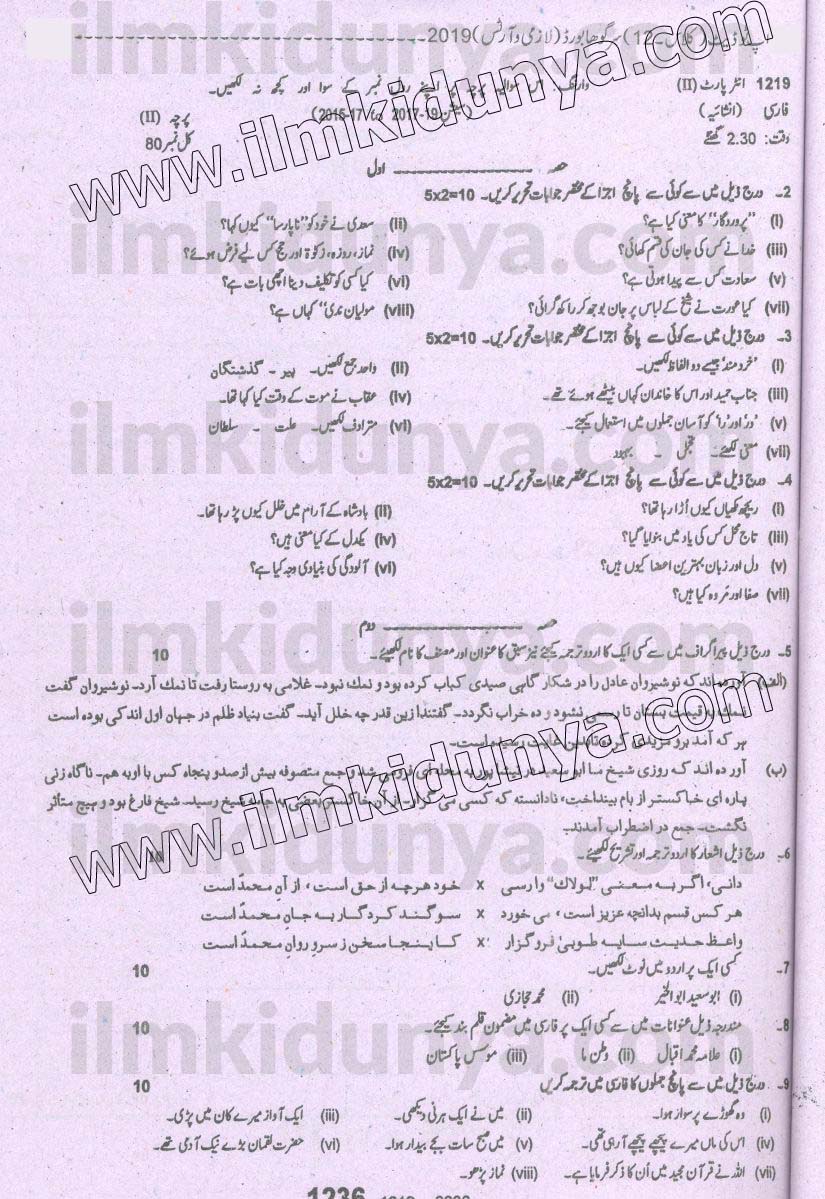 اپ ٹو ڈیٹ (کلاس ـ 12) سرگودھا بورڈ (لازمی و آرٹس) 2019
1219 انٹر پارٹ (II) وارننگ: اس سوالیہ پرچہ پر اپنے رول نمبر کے سوا اور کچھ نہ لکھیں۔
فارسی (انشائیہ) (سیشن 19-2017 to 17-2015) پرچہ (II)
وقت: 2.30 گھنٹے کل نمبر 80
حصہ اول
2۔ درج ذیل میں سے کوئی سے پانچ اجزا کے مختصر جوابات تحریر کریں۔ 5x2=10
(i) ”پروردگار“ کا معنی کیا ہے؟ (ii) سعدی نے خود کو ”ناپارسا“ کیوں کہا؟
(iii) خدا نے کس کی جان کی قسم کھائی؟ (iv) نماز، روزہ، زکوٰۃ اور حج کس لیے فرض ہوئے؟
(v) سعادت کس سے پیدا ہوتی ہے؟ (vi) کیا کسی کو تکلیف دینا اچھی بات ہے؟
(vii) کیا عورت نے شیخ کے لباس پر جان بوجھ کر راکھ گرائی؟ (viii) ”مولیان ندی“ کہاں ہے؟
3۔ درج ذیل میں سے کوئی سے پانچ اجزا کے مختصر جوابات تحریر کریں۔ 5x2=10
(i) ’خردمند‘ جیسے دو الفاظ لکھیں۔ (ii) واحد جمع لکھیں۔ پیر ۔ گذشتگان
(iii) جناب حمید اور اس کا خاندان کہاں بیٹھے ہوئے تھے۔ (iv) عقاب نے موت کے وقت کیا کہا تھا۔
(v) ’در‘ اور ’را‘ کو آسان جملوں میں استعمال کیجئے۔ (vi) مترادف لکھیں۔ علت ۔ سلطان
(vii) معنی لکھئے۔ تجمل ۔ بہبود
4۔ درج ذیل میں سے کوئی سے پانچ اجزا کے مختصر جوابات تحریر کریں۔ 5x2=10
(i) ریچھ مکھیاں کیوں اُڑا رہا تھا؟ (ii) بادشاہ کے آرام میں خلل کیوں پڑ رہا تھا۔
(iii) تاج محل کس کی یاد میں بنوایا گیا؟ (iv) یکدل کے کیا معنی ہیں؟
(v) دل اور زبان بہترین اعضا کیوں ہیں؟ (vi) آلودگی کی بنیادی وجہ کیا ہے؟
(vii) صفا اور مروہ کیا ہیں؟
حصہ دوم
5۔ درج ذیل پیراگراف میں سے کسی ایک کا اردو ترجمہ کیجئے نیز سبق کا عنوان اور مصنف کا نام لکھیئے۔ 10
(الف) آورده اند که نوشیروان عادل را در شکار گاهی صیدی کباب کرده بود و نمك نبود۔ غلامی به روستا رفت تا نمك آرد۔ نوشیروان گفت
نمك به قیمت بستان تا رسمی نشود و ده خراب نگردد۔ گفتند ازین قدر چه خلل آید۔ گفت بنیاد ظلم در جهان اول اندکی بوده است
هر که آمد برو مزیدی کرده تا بدین غایت رسیده است۔
(ب) آورده اند که روزی شیخ ما ابو سعید در نیشاپور به محله ای فرو می شد و جمع متصوفه بیش از صد و پنجاه کس با او به هم۔ ناگاه زنی
پاره ای خاکستر از بام بینداخت، نادانسته که کسی می گزرد۔ از آن خاکستر بعضی به جامه شیخ رسید۔ شیخ فارغ بود و هیچ متأثر
نگشت۔ جمع در اضطراب آمدند۔
6۔ درج ذیل اشعار کا اردو ترجمہ اور تشریح لکھیئے۔ 10
دانی، اگر به معنی "لولاك" وا رسی x خود هرچه از حق است، از آنِ محمدؐ است
هر کس قسم بدانچه عزیز است، می خورد x سوگند کردگار به جانِ محمدؐ است
واعظ حدیث سایه طوبیٰ فرو گزار x کاینجا سخن ز سروِ روانِ محمدؐ است
7۔ کسی ایک پر اردو میں نوٹ لکھیں۔ 10
(i) ابو سعید ابو الخیر (ii) محمد حجازی
8۔ مندرجہ ذیل عنوانات میں سے کسی ایک پر فارسی میں مضمون قلم بند کیجئے۔ 10
(i) علامہ محمد اقبال (ii) وطن ما (iii) موسس پاکستان
9۔ درج ذیل میں سے پانچ جملوں کا فارسی میں ترجمہ کریں 10
(i) وہ گھوڑے پر سوار ہوا۔ (ii) میں نے ایک ہرنی دیکھی۔ (iii) ایک آواز میرے کان میں پڑی۔
(iv) اس کی ماں میرے پیچھے پیچھے آ رہی تھی۔ (v) میں صبح سات بجے بیدار ہوا۔ (vi) حضرت لقمان بڑے نیک آدمی تھے۔
(vii) اللہ نے قرآن مجید میں اُن کا ذکر فرمایا ہے۔ (viii) نماز پڑھو۔
1236
www.ilmkidunya.com
www.ilmkidunya.com
ilmkidunya.com
ilmkidunya.com
ilmkidunya.com
ilmkidunya.com
ilmkidunya.com